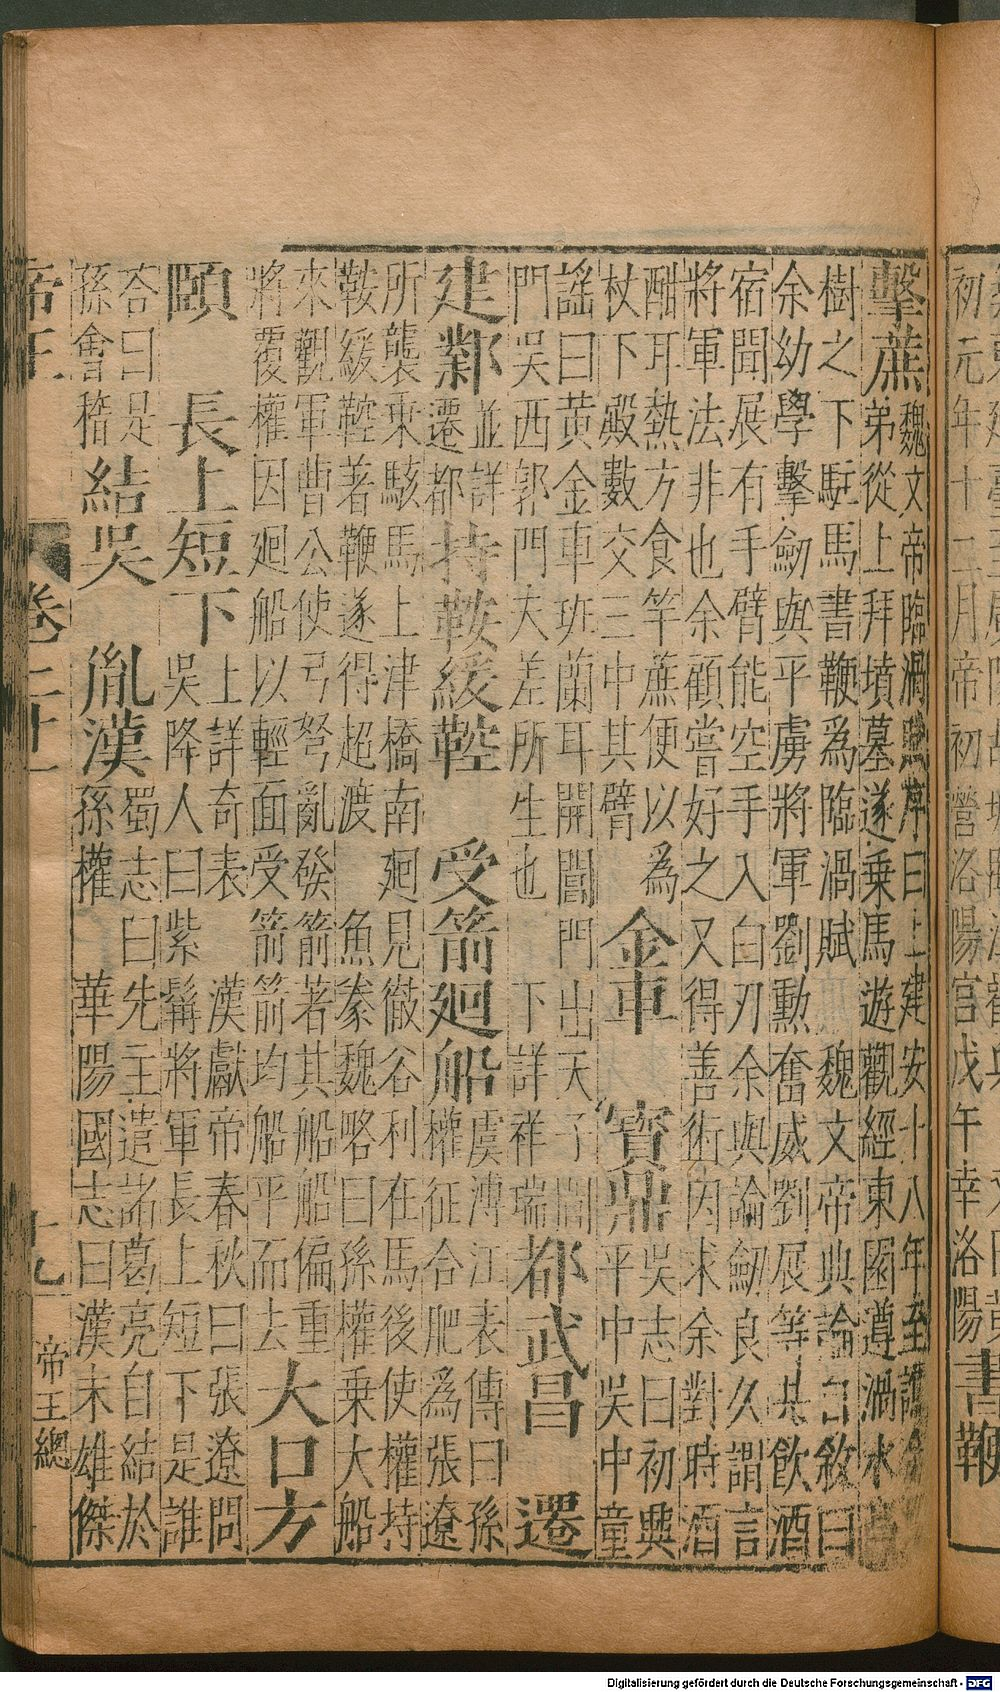 初元年十二月帝初營洛陽宮戊午幸洛陽 書鞭
擊蔗
魏文帝臨渦賦序曰上建安十八年至譙余
弟從上拜墳墓遂乘馬遊觀經東園遵渦水
樹之下駐馬書鞭為臨渦賦 魏文帝典論自敘曰
余幼學擊劒與平虜將軍劉勳奮威劉展等共飲酒
宿聞展有手臂能空手入白刃余與論劒良久謂言
將軍法非也余顧嘗好之又得善術因求余對時酒
酣耳熱方食竿蔗便以為
杖下殿數交三中其臂
金車 寶鼎
吳志曰初興
平中吳中童
謠曰黃金車班蘭耳開閶門出天子閶
門吳西郭門夫差所生也 下詳祥瑞
都武昌 遷
建鄴
並詳
遷都
持鞍緩鞚 受箭廻船
虞溥江表傳曰孫
權征合肥為張遼
所襲乘駿馬上津橋南廻見徹谷利在馬後使權持
鞍緩鞚著鞭遂得超渡 魚豢魏略曰孫權乘大船
來觀軍曹公使弓弩亂發箭著其船船偏重
將覆權因廻船以輕面受箭箭均船平而去
大口方
頤 長上短下
上詳奇表 漢獻帝春秋曰張遼問
吳降人曰紫髯將軍長上短下是誰
荅曰是
孫會稽
結吳 胤漢
蜀志曰先主遣諸葛亮自結於
孫權 華陽國志曰漢末雄傑
帝王 卷二十一 十九 帝王總
Digitalisierung gefördert durch die Deutsche Forschungsgemeinschaft - DFG